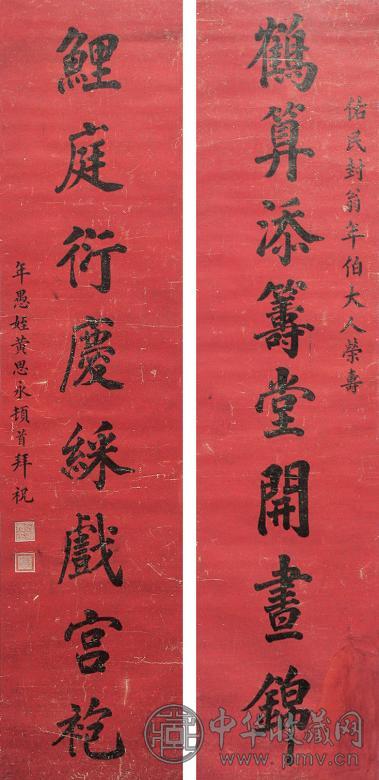 佑民封翁年伯大人榮壽
鶴算添籌堂開晝錦
鯉庭衍慶綵戲宮袍
年愚姪黃思永頓首拜祝
中华收藏网
www.pmv.cn